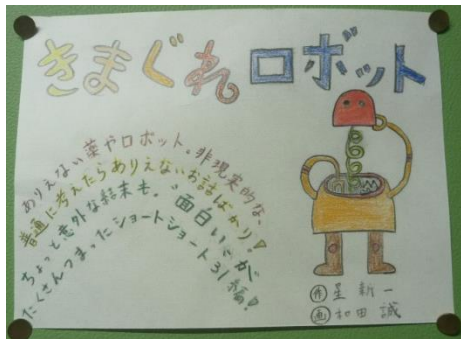 きまぐれロボット
ありえない薬やロボット。非現実的な、
普通に考えたらありえないお話ばかり!
ちょっと意外な結末も。"面白い"が
たくさんつまったショートショート31編!
作 星 新一
画 和田 誠